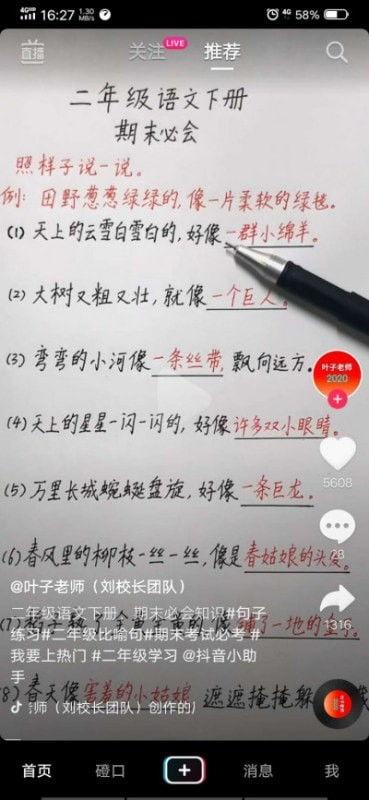 16:27 1.30 MB/s 4G 58%
直播 关注 LIVE 推荐
二年级语文下册
期末必会
照样子说一说。
例: 田野葱葱绿绿的, 像一片柔软的绿毯。
(1) 天上的云雪白雪白的, 好像一群小绵羊。
(2) 大树又粗又壮, 就像一个巨人。
(3) 弯弯的小河像一条丝带, 飘向远方。
叶子老师
2020
(4) 天上的星星一闪一闪的, 好像许多双小眼睛。
5608
(5) 万里长城蜿蜒盘旋, 好像一条巨龙。
28
(6) 春风里的柳枝一丝一丝, 像是春姑娘的头发。
@叶子老师（刘校长团队）
1316
二年级语文下册，期末必会知识#句子
练习#二年级比喻句#期末考试必考 #
我要上热门 #二年级学习 @抖音小助
手
8) 春天像害羞的小姑娘, 遮遮掩掩躲
师（刘校长团队）创作的
首页 磴口 消息 我